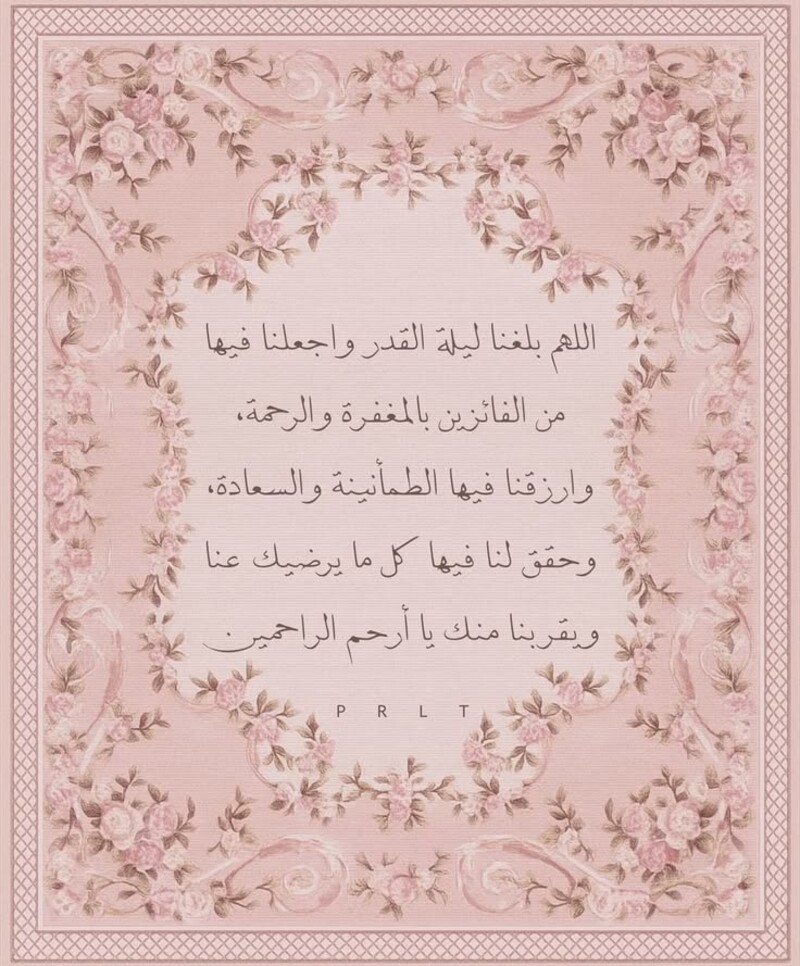 اللهم بلغنا ليلة القدر واجعلنا فيها
من الفائزين بالمغفرة والرحمة،
وارزقنا فيها الطمأنينة والسعادة،
وحقق لنا فيها كل ما يرضيك عنا
ويقربنا منك يا أرحم الراحمين
P R L T